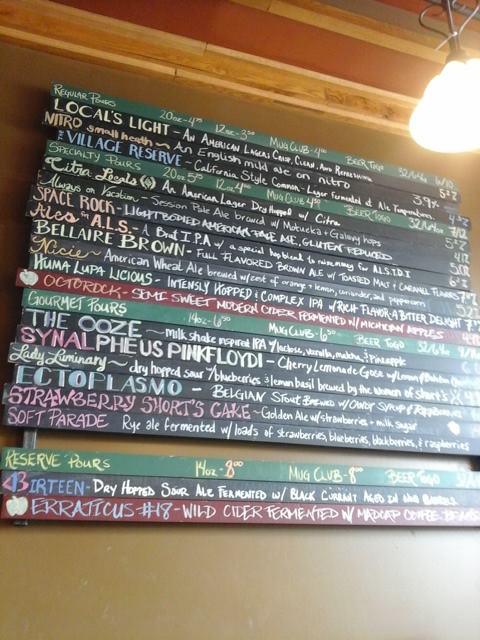 REGULAR POURS 20oz - 4 12oz - 3 MUG CLUB - 4 BEER TO GO
LOCAL'S LIGHT - AN AMERICAN LAGER: CRISP, CLEAN, AND REFRESHING
NITRO small heath ~ An English mild ale on nitro
VILLAGE RESERVE - California Style Common - Lager Fermented at Ale Temperatures
SPECIALTY POURS 20oz 12oz MUG CLUB BEER TO GO
Citra: Locals An American Lager Dry Hopped w/ Citra
Always on Vacation - Session Pale Ale brewed w/ Motueka + Galaxy hops
SPACE ROCK - LIGHT BODIED AMERICAN PALE ALE, GLUTEN REDUCED
A.L.S. - A Brut I.P.A w/ a special hop blend to raise money for A.L.S.
BELLAIRE BROWN - FULL FLAVORED BROWN ALE w/ TOASTED MALT + CARAMEL FLAVORS
Nicie - American Wheat Ale brewed w/ zest of orange + lemon, coriander, and peppercorn
HUMA LUPA LICIOUS - INTENSLY HOPPED & COMPLEX IPA w/ RICH FLAVOR & BITTER DELIGHT
OCTOROCK - SEMI SWEET MODERN CIDER FERMENTED w/ MICHIGAN APPLES
GOURMET POURS 14oz - 6 MUG CLUB - 6 BEER TO GO
THE OOZE ~ milk shake inspired IPA w/ lactose, vanilla, matcha, & pineapple
SYNALPHEUS PINKFLOYDI - CHERRY LEMONADE GOSE w/ LEMON
Lady Luminary ~ dry hopped sour w/ blueberries & lemon basil brewed by the women of short's
ECTOPLASMO - BELGIAN STOUT BREWED w/ CANDY SYRUP
STRAWBERRY SHORT'S CAKE ~ Golden Ale w/ strawberries + milk sugar
SOFT PARADE Rye ale fermented w/ loads of strawberries, blueberries, blackberries, & raspberries
RESERVE POURS 14oz - 8⁰⁰ MUG CLUB - 8⁰⁰ BEER TO GO
BIRTEEN - DRY HOPPED SOUR ALE FERMENTED w/ BLACK CURRANT AGED IN BARRELS
ERRATICUS #18 - WILD CIDER FERMENTED w/ MADCAP COFFEE BEANS